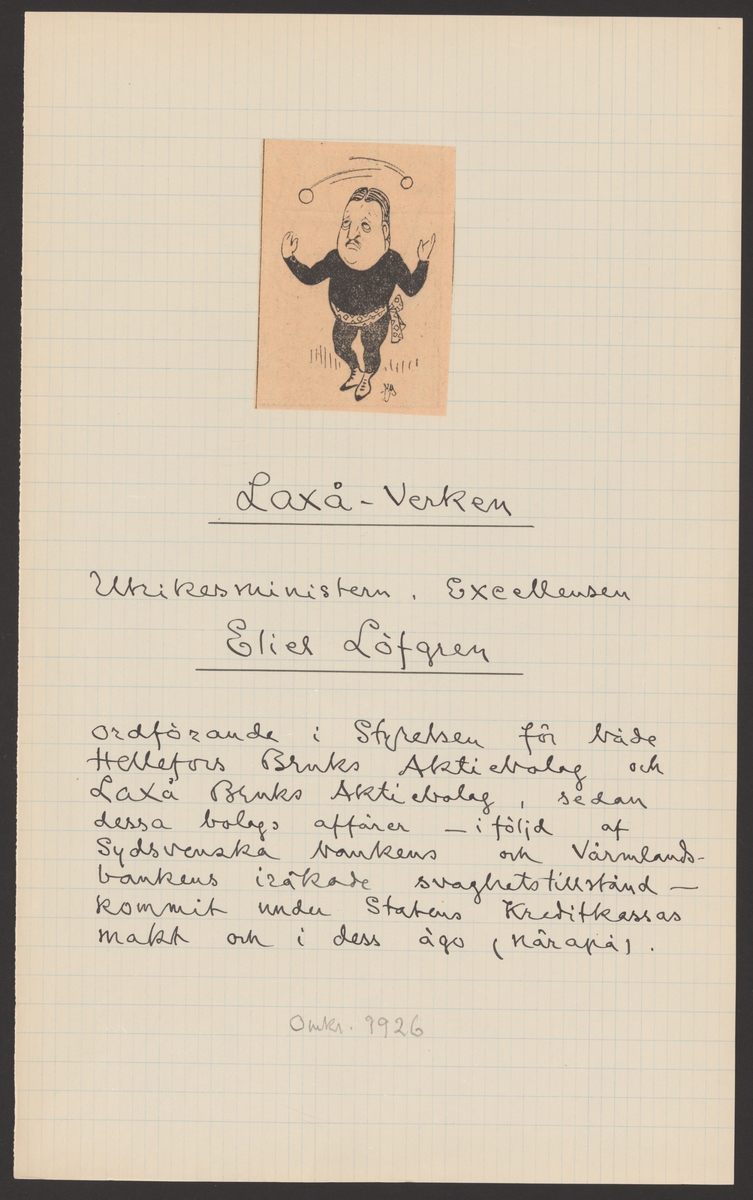 Laxå-Verken
Utrikesministern, Excellensen
Eliel Löfgren
ordförande i Styrelsen för både
Hellefors Bruks Aktiebolag och
Laxå Bruks Aktiebolag, sedan
dessa bolags affärer – i följd af
Sydsvenska bankens och Värmlands-
bankens iråkade svaghetstillstånd –
kommit under Statens Kreditkassas
makt och i dess ägo (närapå).
Omkr. 1926